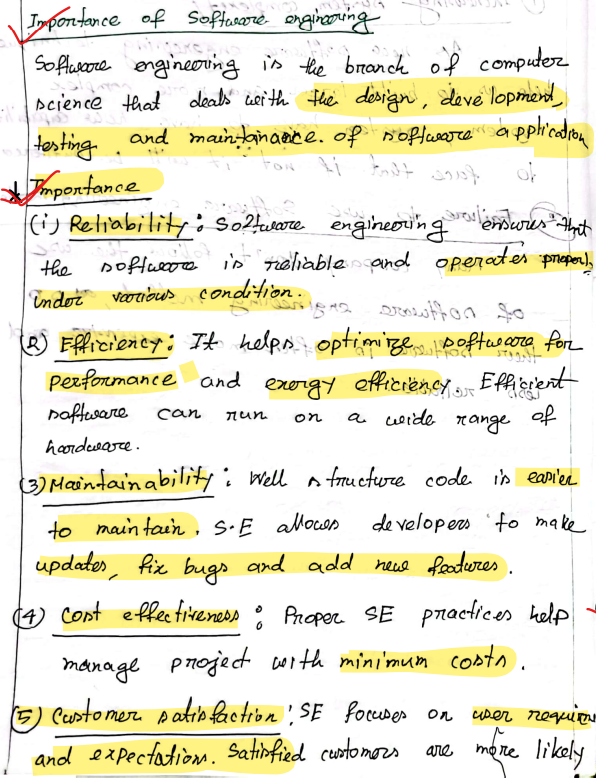 Importance of Software engineering
Software engineering is the branch of computer
science that deals with the design, development,
testing and maintainance. of software application
* Importance
(i) Reliability : So2tware engineering ensures that
the software is reliable and operates properly
under various condition.
(2) Efficiency: It helps optimize software for
performance and exergy efficiency. Efficient
software can run on a wide range of
hardware.
(3) Maintainability : Well structure code is easier
to maintain. S.E allows developers to make
updates, fix bugs and add new features.
(4) Cost effectiveness : Proper SE practices help
manage project with minimum costs.
(5) Customer satisfaction : SE focuses on user require
and expectations. Satisfied customers are more likely